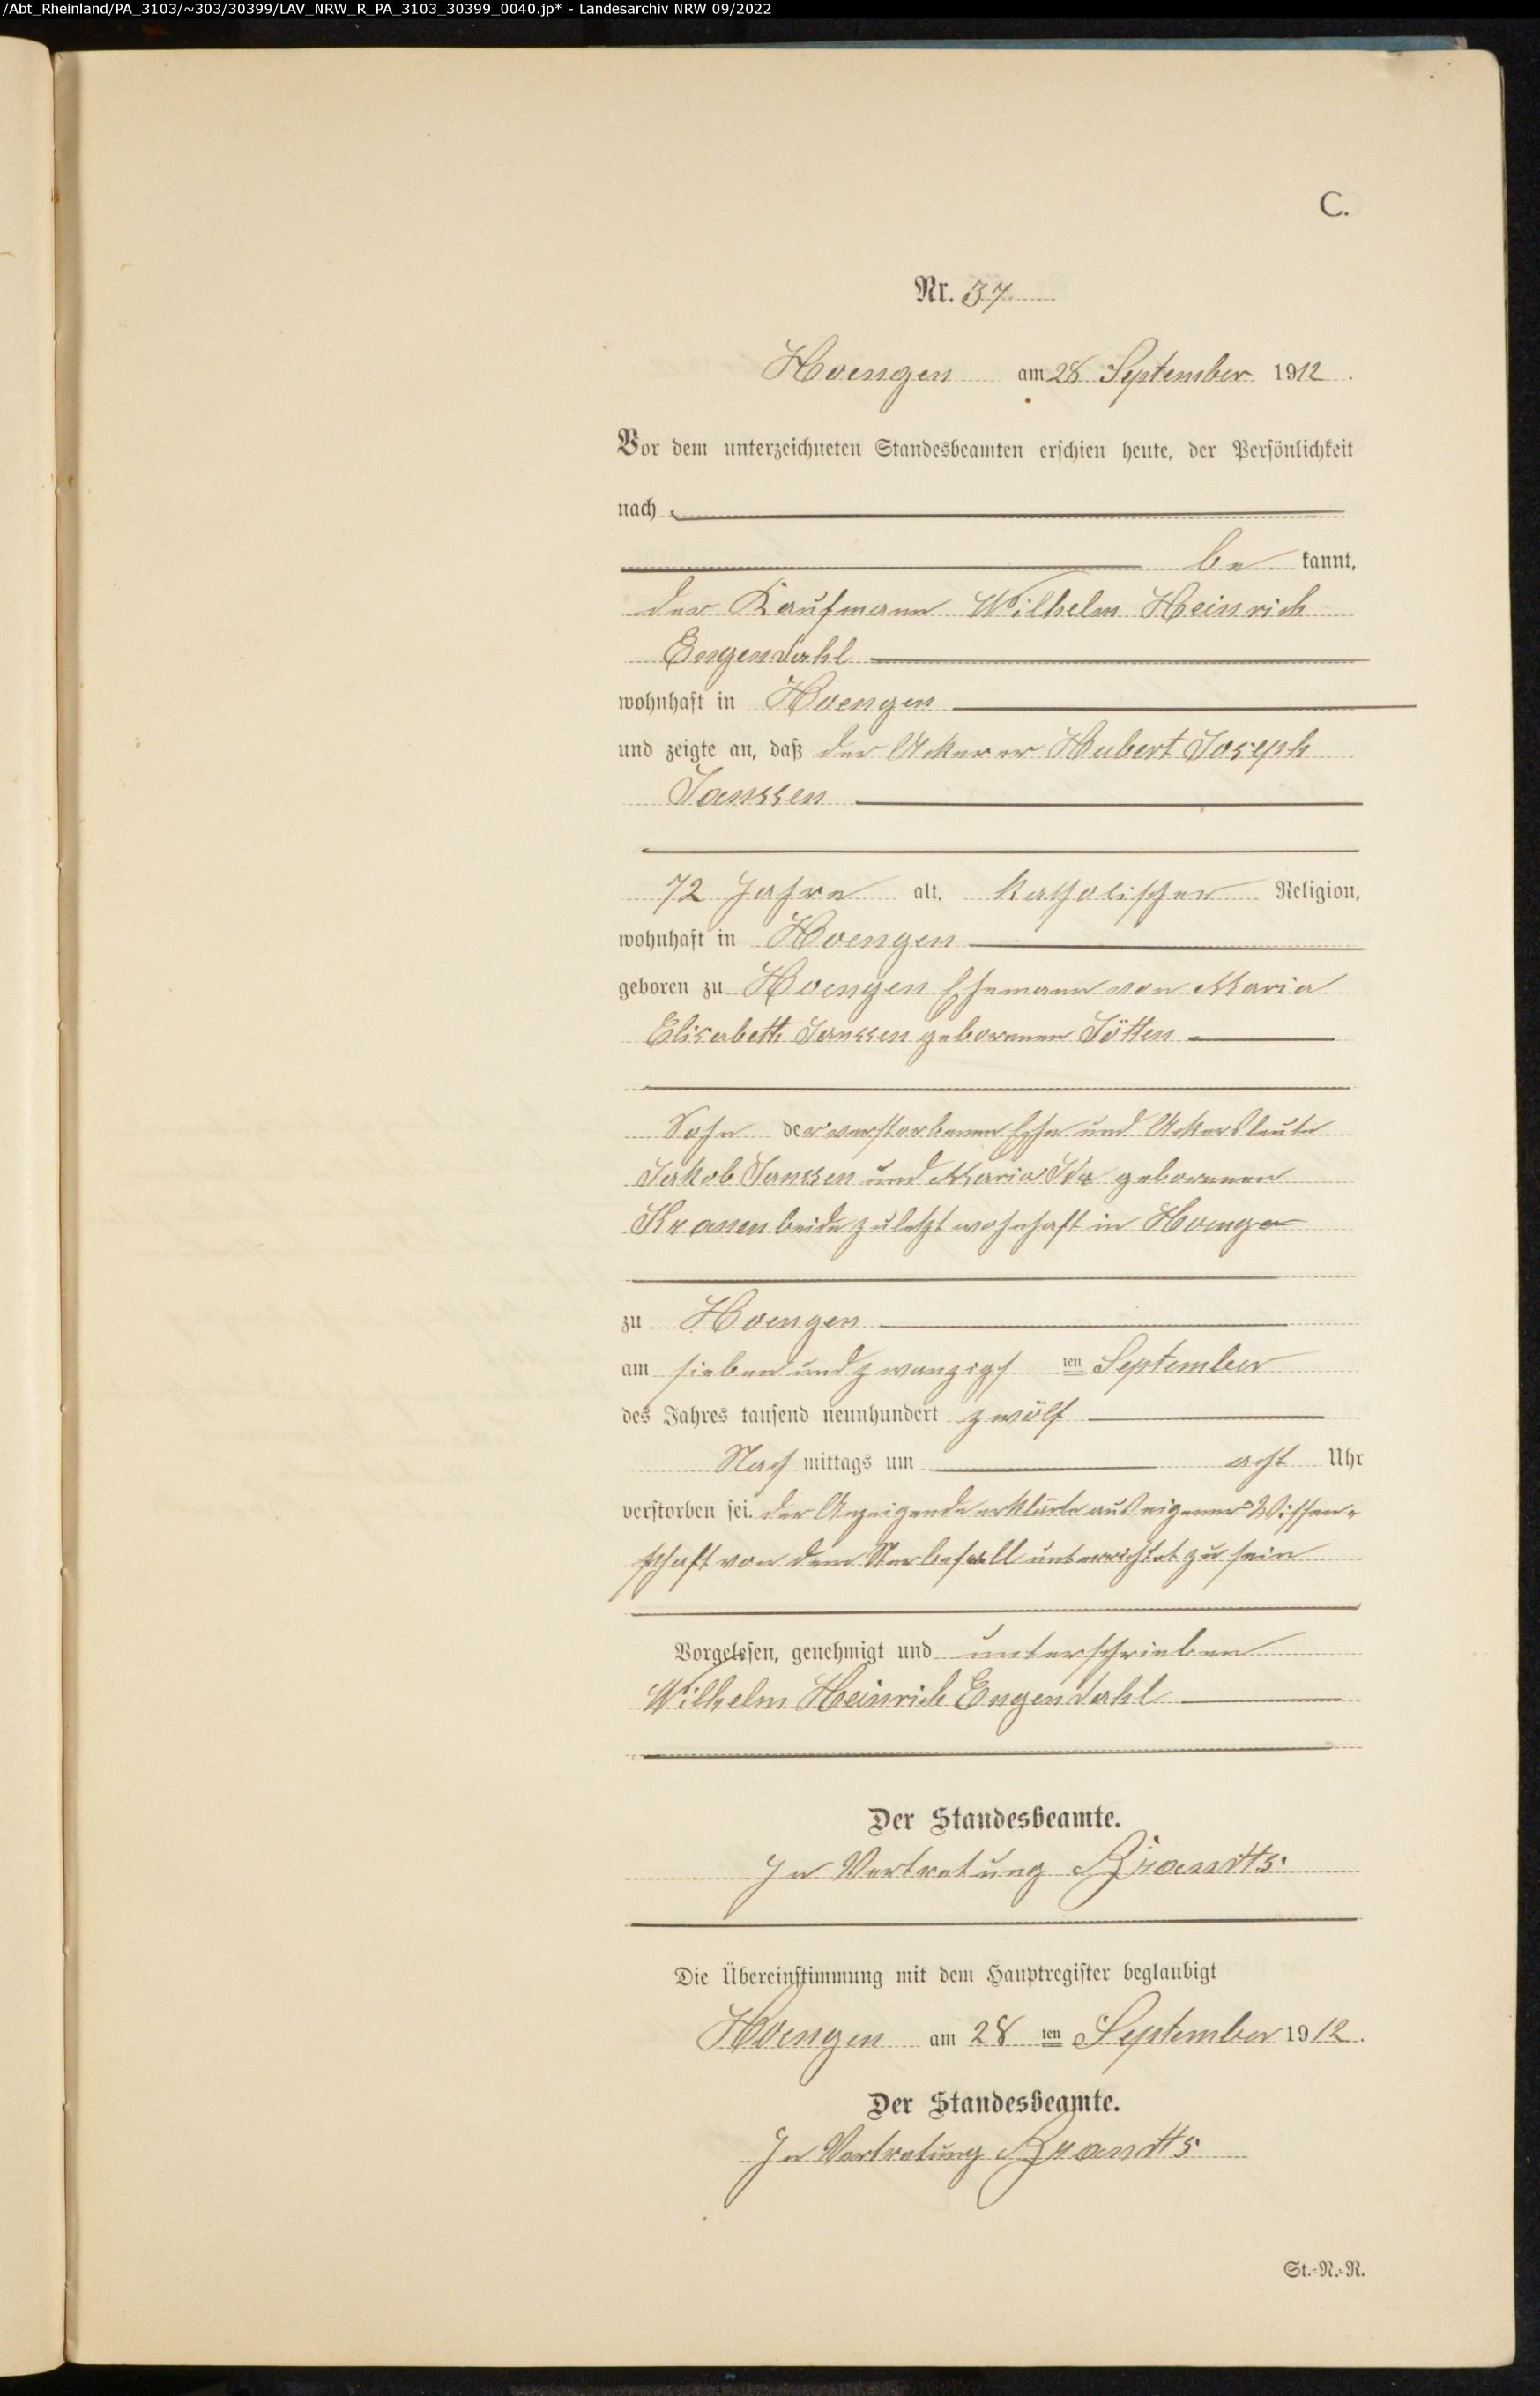 /Abt_Rheinland/PA_3103/~303/30399/LAV_NRW_R_PA_3103_30399_0040.jp* - Landesarchiv NRW 09/2022
C.
Nr. 37
Hoengen am 28 September 1912.
Vor dem unterzeichneten Standesbeamten erschien heute, der Persönlichkeit
nach
be kannt,
der Kaufmann Wilhelm Heinrich
Engendahl
wohnhaft in Hoengen
und zeigte an, daß der Ackerer Hubert Joseph
Janssen
72 Jahre alt, katholischer Religion,
wohnhaft in Hoengen
geboren zu Hoengen Ehemann von Maria
Elisabeth Janssen geborenen Jötten
Sohn der verstorbenen Ehe und Ackersleute
Jakob Janssen und Maria Ida geborenen
Kranen beide zuletzt wohnhaft in Hoengen
zu Hoengen
am siebenundzwanzigs ten September
des Jahres tausend neunhundert zwölf
Nach mittags um acht Uhr
verstorben sei. der Anzeigende erklärte aus eigener Wissen-
schaft von dem Sterbefall unterrichtet zu sein
Vorgelesen, genehmigt und unterschrieben
Wilhelm Heinrich Engendahl
Der Standesbeamte.
In Vertretung Brandts
Die Übereinstimmung mit dem Hauptregister beglaubigt
Hoengen am 28 ten September 1912.
Der Standesbeamte.
In Vertretung Brandts
St.-N.-R.